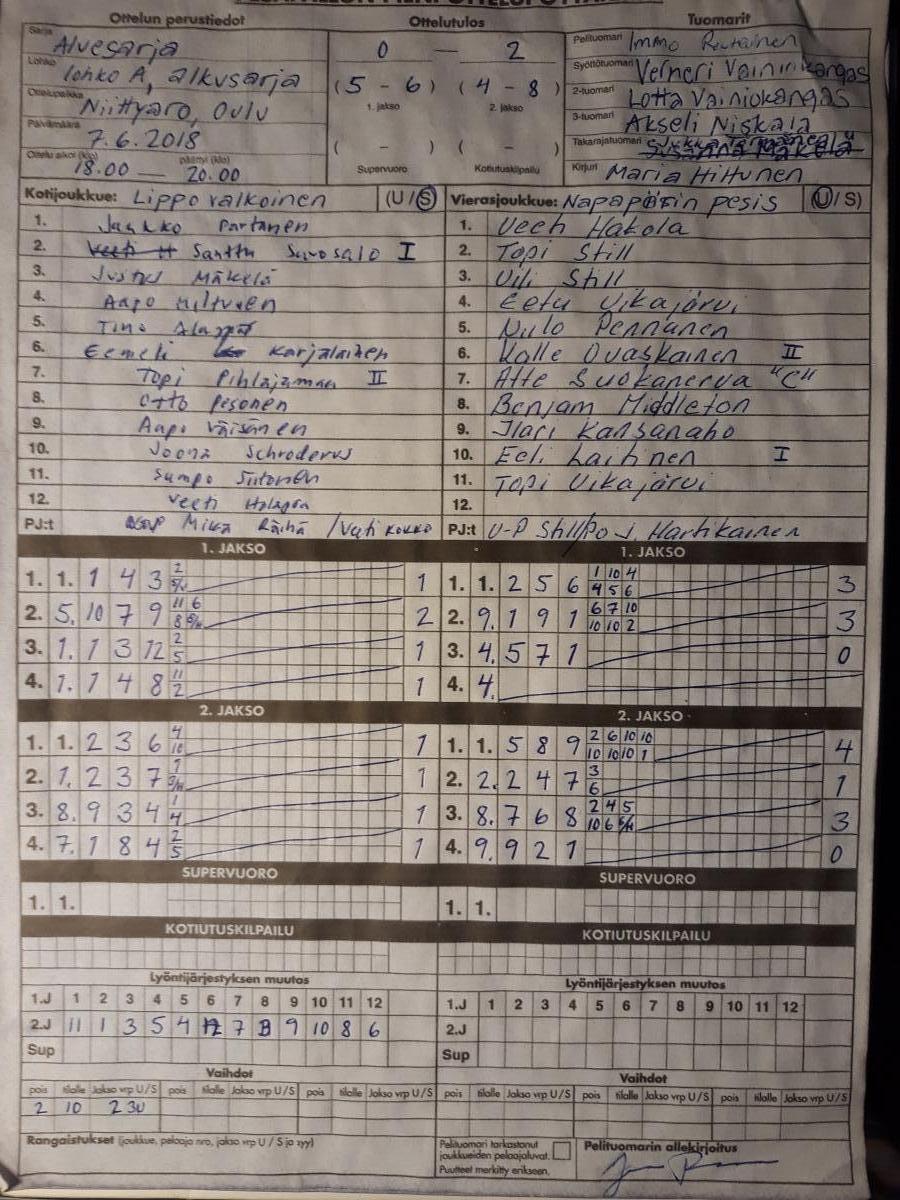 Ottelun perustiedot
Ottelutulos
Tuomarit
Sarja Alvesarja
Lohko lohko A, alkusarja
Ottelupaikka Niittyaro, Oulu
Päivämäärä 7.6.2018
Ottelu alkoi (klo) päättyi (klo)
18.00 — 20.00
0 — 2
(5 - 6) (4 - 8)
1. jakso 2. jakso
( - ) ( - )
Supervuoro Kotiutuskilpailu
Pelituomari Immo
Syöttötuomari Verneri Vainiokangas
2-tuomari Lotta Vainiokangas
3-tuomari Akseli Niskala
Takarajatuomari
Kirjuri Maria Hiltunen
Kotijoukkue: Lippo valkoinen (U/S)
1. Jaakko Partanen
2. Santtu Suvosalo I
3. Justus Mäkelä
4. Aapo Hiltunen
5. Timo
6. Eemeli Karjalainen
7. Topi Pihlajamaa II
8. Otto Pesonen
9. Aapo Väisänen
10. Joona Schroderus
11. Sampo Siitonen
12. Veeti Holappa
PJ:t Mika Räihä / Veeti Kokko
Vierasjoukkue: Napapiirin pesis (U/S)
1. Veeti Hakola
2. Topi Still
3. Vili Still
4. Eetu Vikajärvi
5. Niilo Pennanen
6. Kalle Ovaskainen II
7. Atte Suokanerva "C"
8. Benjam Middleton
9. Ilari Kansanaho
10. Eeli Laitinen I
11. Topi Vikajärvi
12.
PJ:t U-P Still/Po J. Hartikainen
1. JAKSO
1. 1. 1 4 3 2 1
2. 5. 10 7 9 11 6 8 2
3. 1. 1 3 12 2 5 1
4. 1. 1 4 8 11 2 1
1. JAKSO
1. 1. 2 5 6 1 10 4 4 5 6 3
2. 9. 1 9 1 6 7 10 10 10 2 3
3. 4. 5 7 1 0
4. 4.
2. JAKSO
1. 1. 2 3 6 4 10 1
2. 1. 2 3 7 1 1
3. 8. 9 3 4 1 4 1
4. 7. 1 8 4 2 5 1
2. JAKSO
1. 1. 5 8 9 2 6 10 10 10 10 10 1 4
2. 2. 2 4 7 3 6 1
3. 8. 7 6 8 2 4 5 10 6 3
4. 9. 9 2 1 0
SUPERVUORO
1. 1.
SUPERVUORO
1. 1.
KOTIUTUSKILPAILU
KOTIUTUSKILPAILU
Lyöntijärjestyksen muutos
1.J 1 2 3 4 5 6 7 8 9 10 11 12
2.J 11 1 3 5 4 12 7 9 10 8 6
Sup
Lyöntijärjestyksen muutos
1.J 1 2 3 4 5 6 7 8 9 10 11 12
2.J
Sup
Vaihdot
pois tilalle Jakso vrp U/S pois tilalle Jakso vrp U/S pois tilalle Jakso vrp U/S
2 10 2 3U
Vaihdot
pois tilalle Jakso vrp U/S pois tilalle Jakso vrp U/S pois tilalle Jakso vrp U/S
Rangaistukset (joukkue, pelaaja nro, jakso vrp U / S ja syy)
Pelituomari tarkastanut
joukkueiden pelaajaluvat.
Puutteet merkitty erikseen.
Pelituomarin allekirjoitus